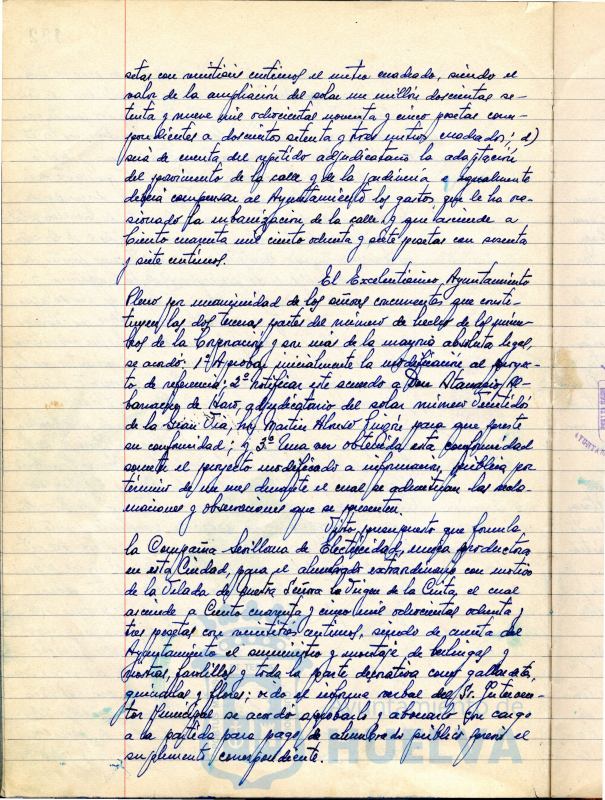 setas con veintiseis centimos el metro cuadrado, siendo el
valor de la ampliación del solar un millón doscientas se-
tenta y nueve mil ochocientas noventa y cinco pesetas corres-
pondientes a doscientos setenta y tres metros cuadrados; d)
será de cuenta del repetido adjudicatario la adaptación
del pavimento de la calle y de la jardinería e igualmente
deberá compensar al Ayuntamiento los gastos que le ha oca-
sionado la urbanización de la calle y que asciende a
Ciento cuarenta mil ciento ochenta y siete pesetas con sesenta
y siete centimos.
El Excelentisimo Ayuntamiento
Pleno por unanimidad de los señores concurrentes que consti-
tuyen las dos terceras partes del número de hecho de los miem-
bros de la Corporación y son mas de la mayoría absoluta legal,
se acordó: 1º Aprobar inicialmente la modificación al proyec-
to de referencia; 2º notificar este acuerdo a Don Atanasio Al-
barracín de Haro, adjudicatario del solar número Veintidós
de la Gran Vía, hoy Martín Alonso Pinzón para que preste
su conformidad; y 3º Una vez obtenida esta conformidad
someter el proyecto modificado a información pública por
término de un mes durante el cual se admitirían las recla-
maciones y observaciones que se presenten.
Visto presupuesto que formula
la Compañía Sevillana de Electricidad, unica productora
en esta Ciudad, para el alumbrado extraordinario con motivo
de la Velada de Nuestra Señora la Virgen de la Cinta, el cual
asciende a Ciento cuarenta y cinco mil ochocientas ochenta y
tres pesetas con veintitrés centimos, siendo de cuenta del
Ayuntamiento el suministro y montaje de
farolillos y toda la parte decorativa como gallardetes,
guirnaldas y flores; oído el informe verbal del Sr. Interven-
tor Municipal se acordó aprobarlo y abonarlo con cargo
a la partida para pago de alumbrado público previo el
suplemento correspondiente.
Ayuntamiento de
HUELVA